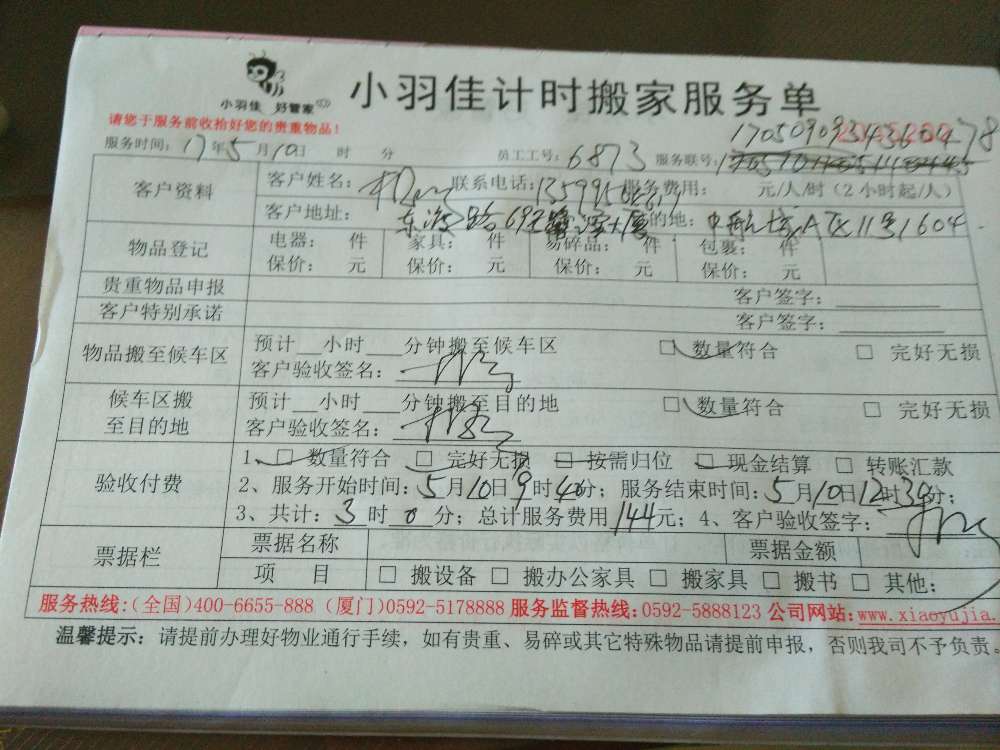 小羽佳 好管家
小羽佳计时搬家服务单
请您于服务前收拾好您的贵重物品！
服务时间：17年5月10日 时 分 员工工号：6873 服务联号：
客户资料 客户姓名： 联系电话： 服务费用： 元/人/时（2小时起/人）
客户地址： 的地： A区11号1604
物品登记 电器： 件 家具： 件 易碎品： 件 包裹： 件
保价： 元 保价： 元 保价： 元 保价： 元
贵重物品申报 客户签字：
客户特别承诺 客户签字：
物品搬至候车区 预计__小时___分钟搬至候车区 □ 数量符合 □ 完好无损
客户验收签名：
候车区搬至目的地 预计__小时___分钟搬至目的地 □ 数量符合 □ 完好无损
客户验收签名：
验收付费 1、□ 数量符合 □ 完好无损 □ 按需归位 □ 现金结算 □ 转账汇款
2、服务开始时间：5月10日9时40分；服务结束时间：5月10日12时39分；
3、共计：3时0分；总计服务费用144元；4、客户验收签字：
票据栏 票据名称 票据金额
项 目 □ 搬设备 □ 搬办公家具 □ 搬家具 □ 搬书 □ 其他：
服务热线：（全国）400-6655-888（厦门）0592-5178888 服务监督热线：0592-5888123 公司网站：www.xiaoyujia.
温馨提示：请提前办理好物业通行手续，如有贵重、易碎或其它特殊物品请提前申报，否则我司不予负责。